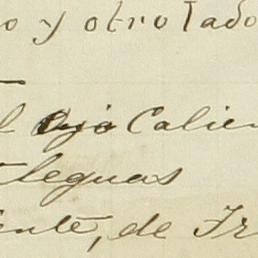 o y otro lado
l Ojo Calien
leguas
iente, de Fr